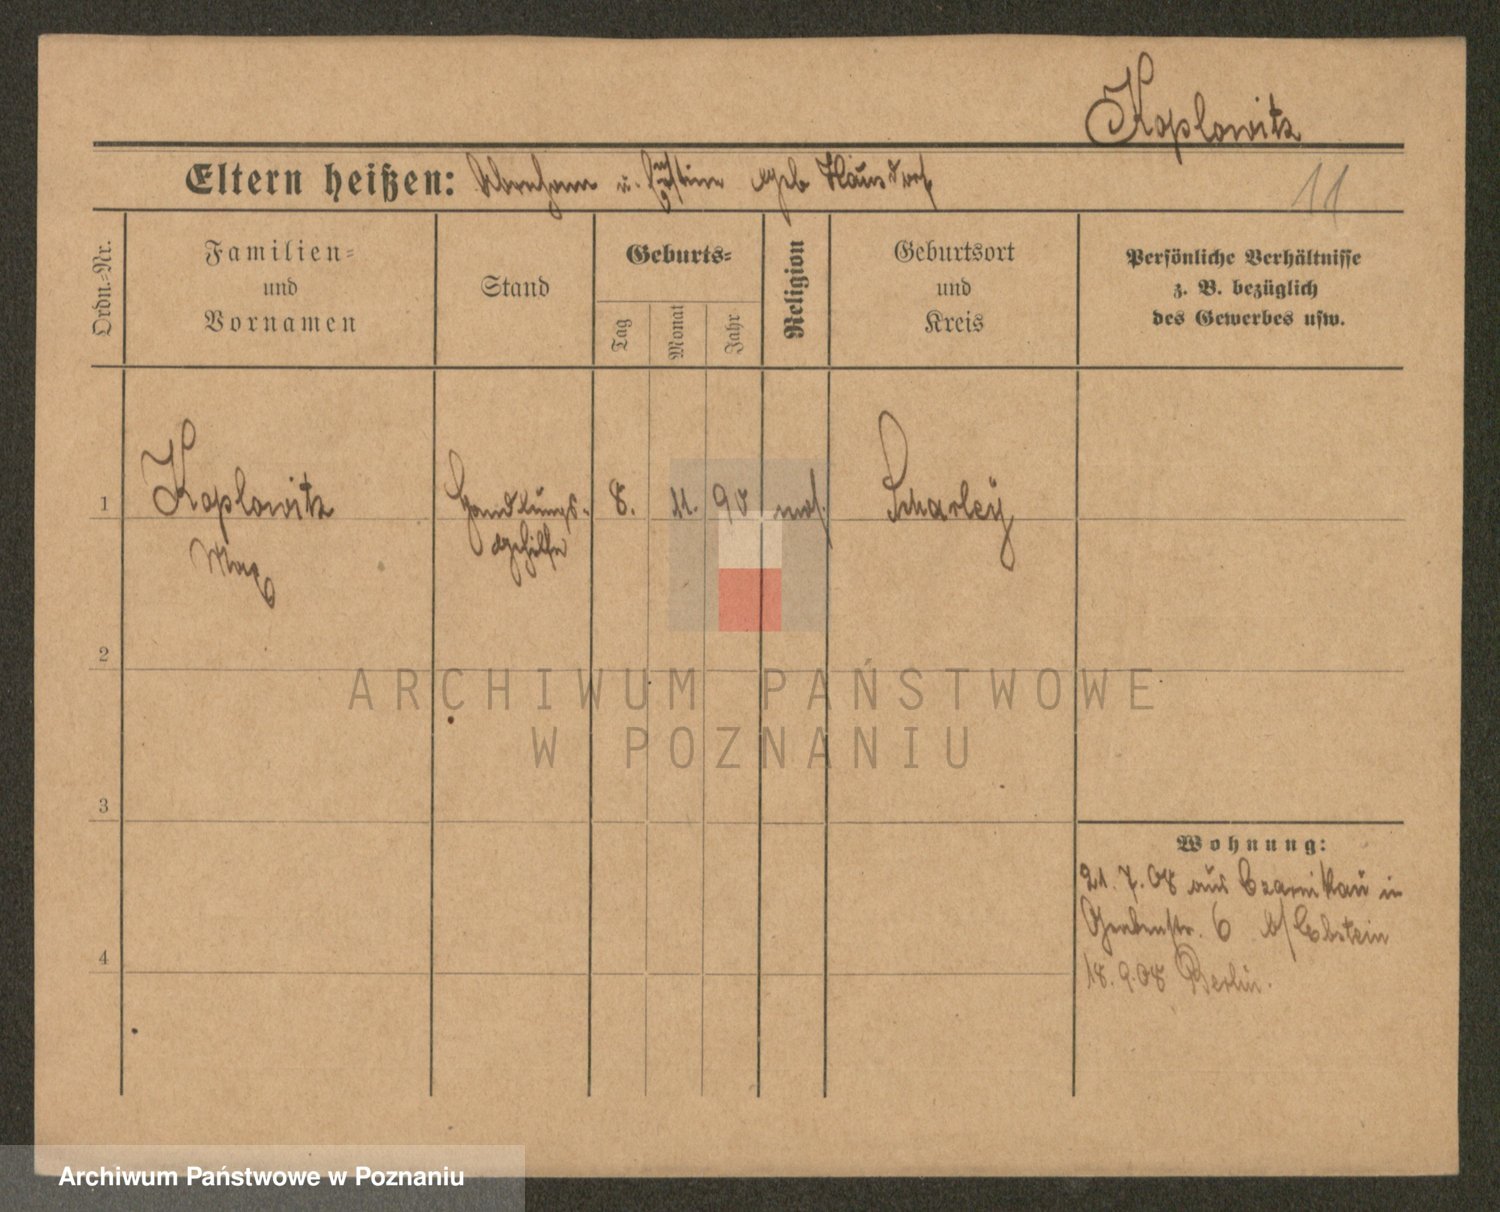 Koplowitz
Eltern heißen: Abraham u. Ernstine geb Hausdorf
11
Ordn.-Nr.
Familien-
und
Vornamen
Stand
Geburts-
Tag
Monat
Jahr
Religion
Geburtsort
und
Kreis
Persönliche Verhältnisse
z. B. bezüglich
des Gewerbes usw.
1
Koplowitz
Max
Handlungs-
gehilfe
8. 11. 90 mos.
Scharley
2
3
4
ARCHIWUM PAŃSTWOWE
W POZNANIU
Wohnung:
21.7.08 aus Czarnikau in
Grabenstr. 6 b/ Ebstein
18.9.08 Berlin.
Archiwum Państwowe w Poznaniu